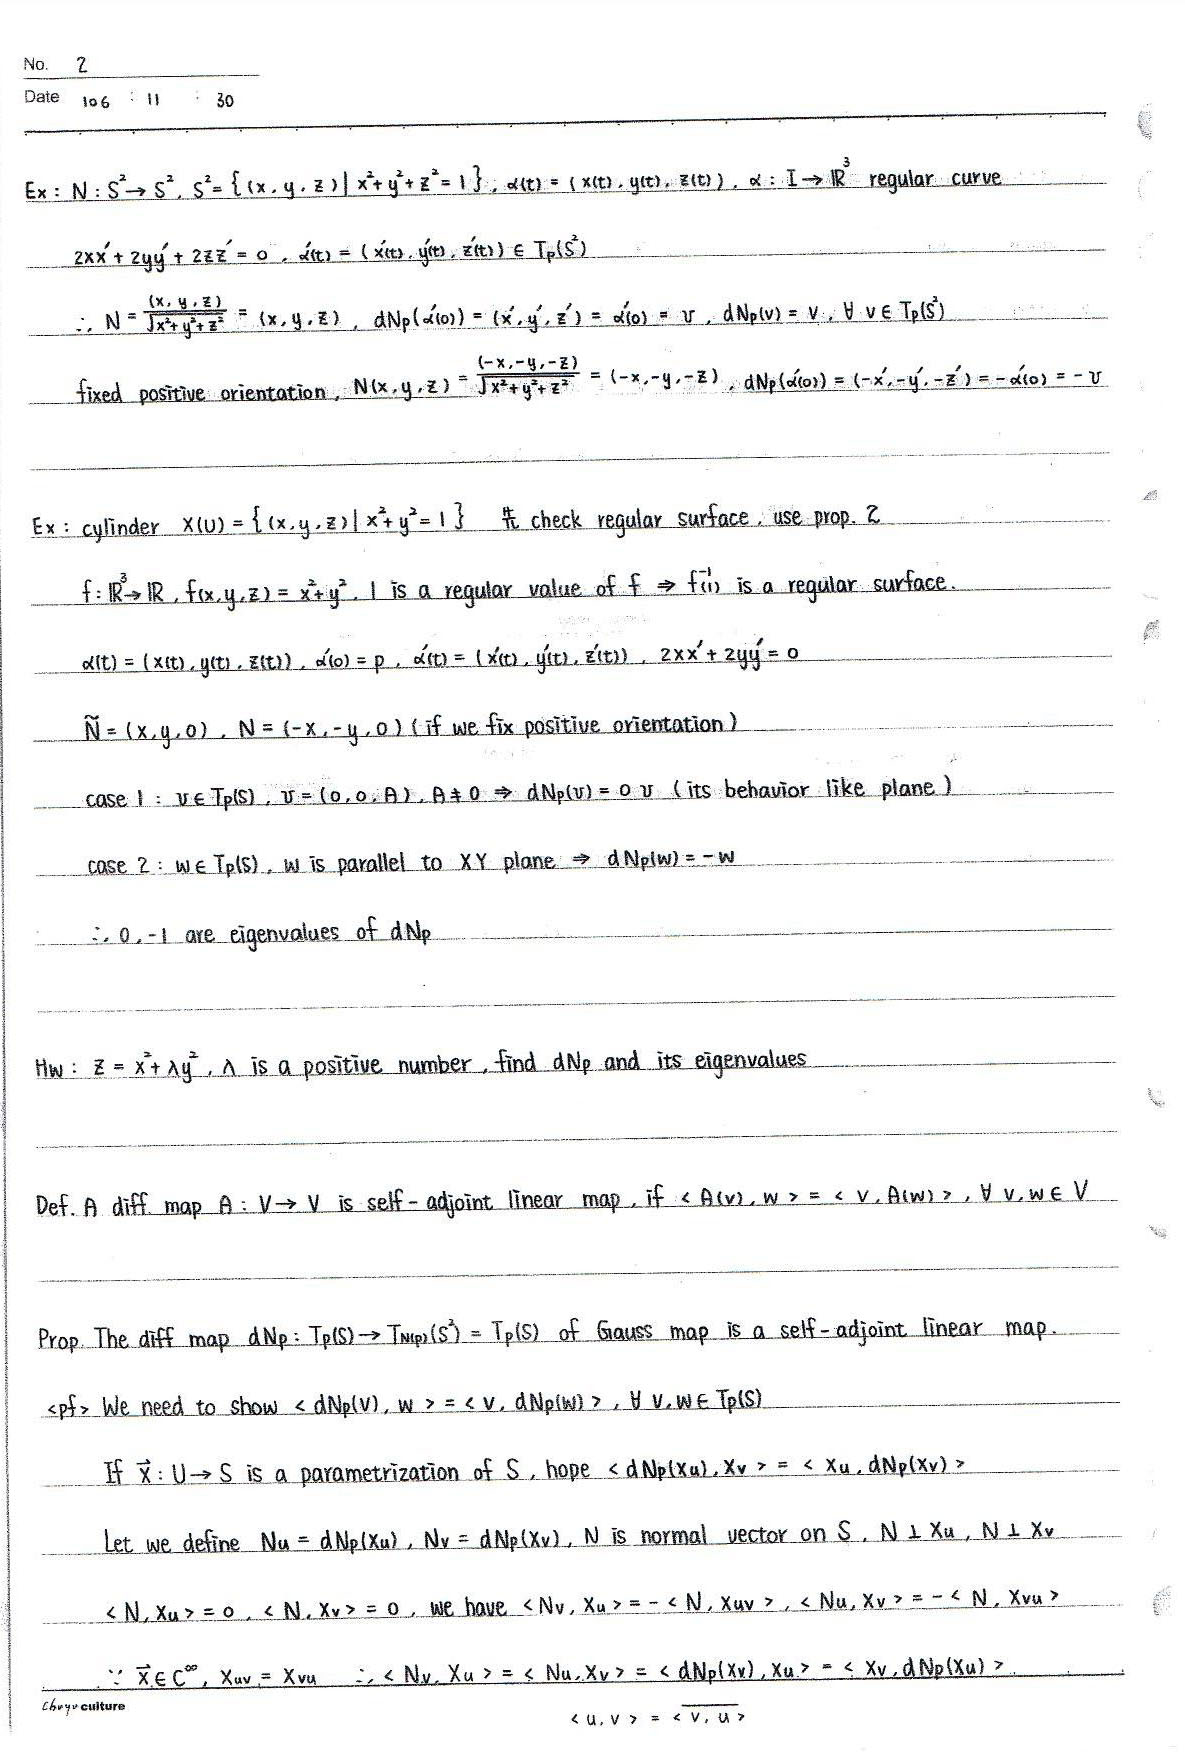 No. 2
Date 106 : 11 : 30
Ex : N : S² → S², S² = {(x, y, z) | x² + y² + z² = 1}, α(t) = (x(t), y(t), z(t)), α : I → ℝ³ regular curve
2xx' + 2yy' + 2zz' = 0, α'(t) = (x'(t), y'(t), z'(t)) ∈ Tp(S²)
∴ N = (x, y, z)/√x²+y²+z² = (x, y, z), dNp(α'(0)) = (x', y', z') = α'(0) = v, dNp(v) = v, ∀ v ∈ Tp(S²)
fixed positive orientation, N(x, y, z) = (-x, -y, -z)/√x²+y²+z² = (-x, -y, -z), dNp(α'(0)) = (-x', -y', -z') = -α'(0) = -v
Ex : cylinder X(U) = {(x, y, z) | x² + y² = 1} 先 check regular surface, use prop. 2
f : ℝ³ → ℝ, f(x, y, z) = x² + y², 1 is a regular value of f ⇒ f⁻¹(1) is a regular surface.
α(t) = (x(t), y(t), z(t)), α'(0) = p, α'(t) = (x'(t), y'(t), z'(t)), 2xx' + 2yy' = 0
Ñ = (x, y, 0), N = (-x, -y, 0) (if we fix positive orientation)
case 1 : v ∈ Tp(S), v = (0, 0, A), A ≠ 0 ⇒ dNp(v) = 0 v (its behavior like plane)
case 2 : w ∈ Tp(S), w is parallel to XY plane ⇒ dNp(w) = -w
∴ 0, -1 are eigenvalues of dNp
Hw : z = x² + λy², λ is a positive number, find dNp and its eigenvalues
Def. A diff. map A : V → V is self-adjoint linear map, if < A(v), w > = < v, A(w) >, ∀ v, w ∈ V
Prop. The diff map dNp : Tp(S) → TN(p)(S²) = Tp(S) of Gauss map is a self-adjoint linear map.
<pf> We need to show < dNp(v), w > = < v, dNp(w) >, ∀ v, w ∈ Tp(S)
If x⃗ : U → S is a parametrization of S, hope < dNp(Xu), Xv > = < Xu, dNp(Xv) >
Let we define Nu = dNp(Xu), Nv = dNp(Xv), N is normal vector on S, N ⊥ Xu, N ⊥ Xv
< N, Xu > = 0, < N, Xv > = 0, we have < Nv, Xu > = - < N, Xuv >, < Nu, Xv > = - < N, Xvu >
∵ x⃗ ∈ C^∞, Xuv = Xvu ∴ < Nv, Xu > = < Nu, Xv > = < dNp(Xv), Xu > = < Xv, dNp(Xu) >
culture
< u, v > = < v̅,̅ ̅u̅ >